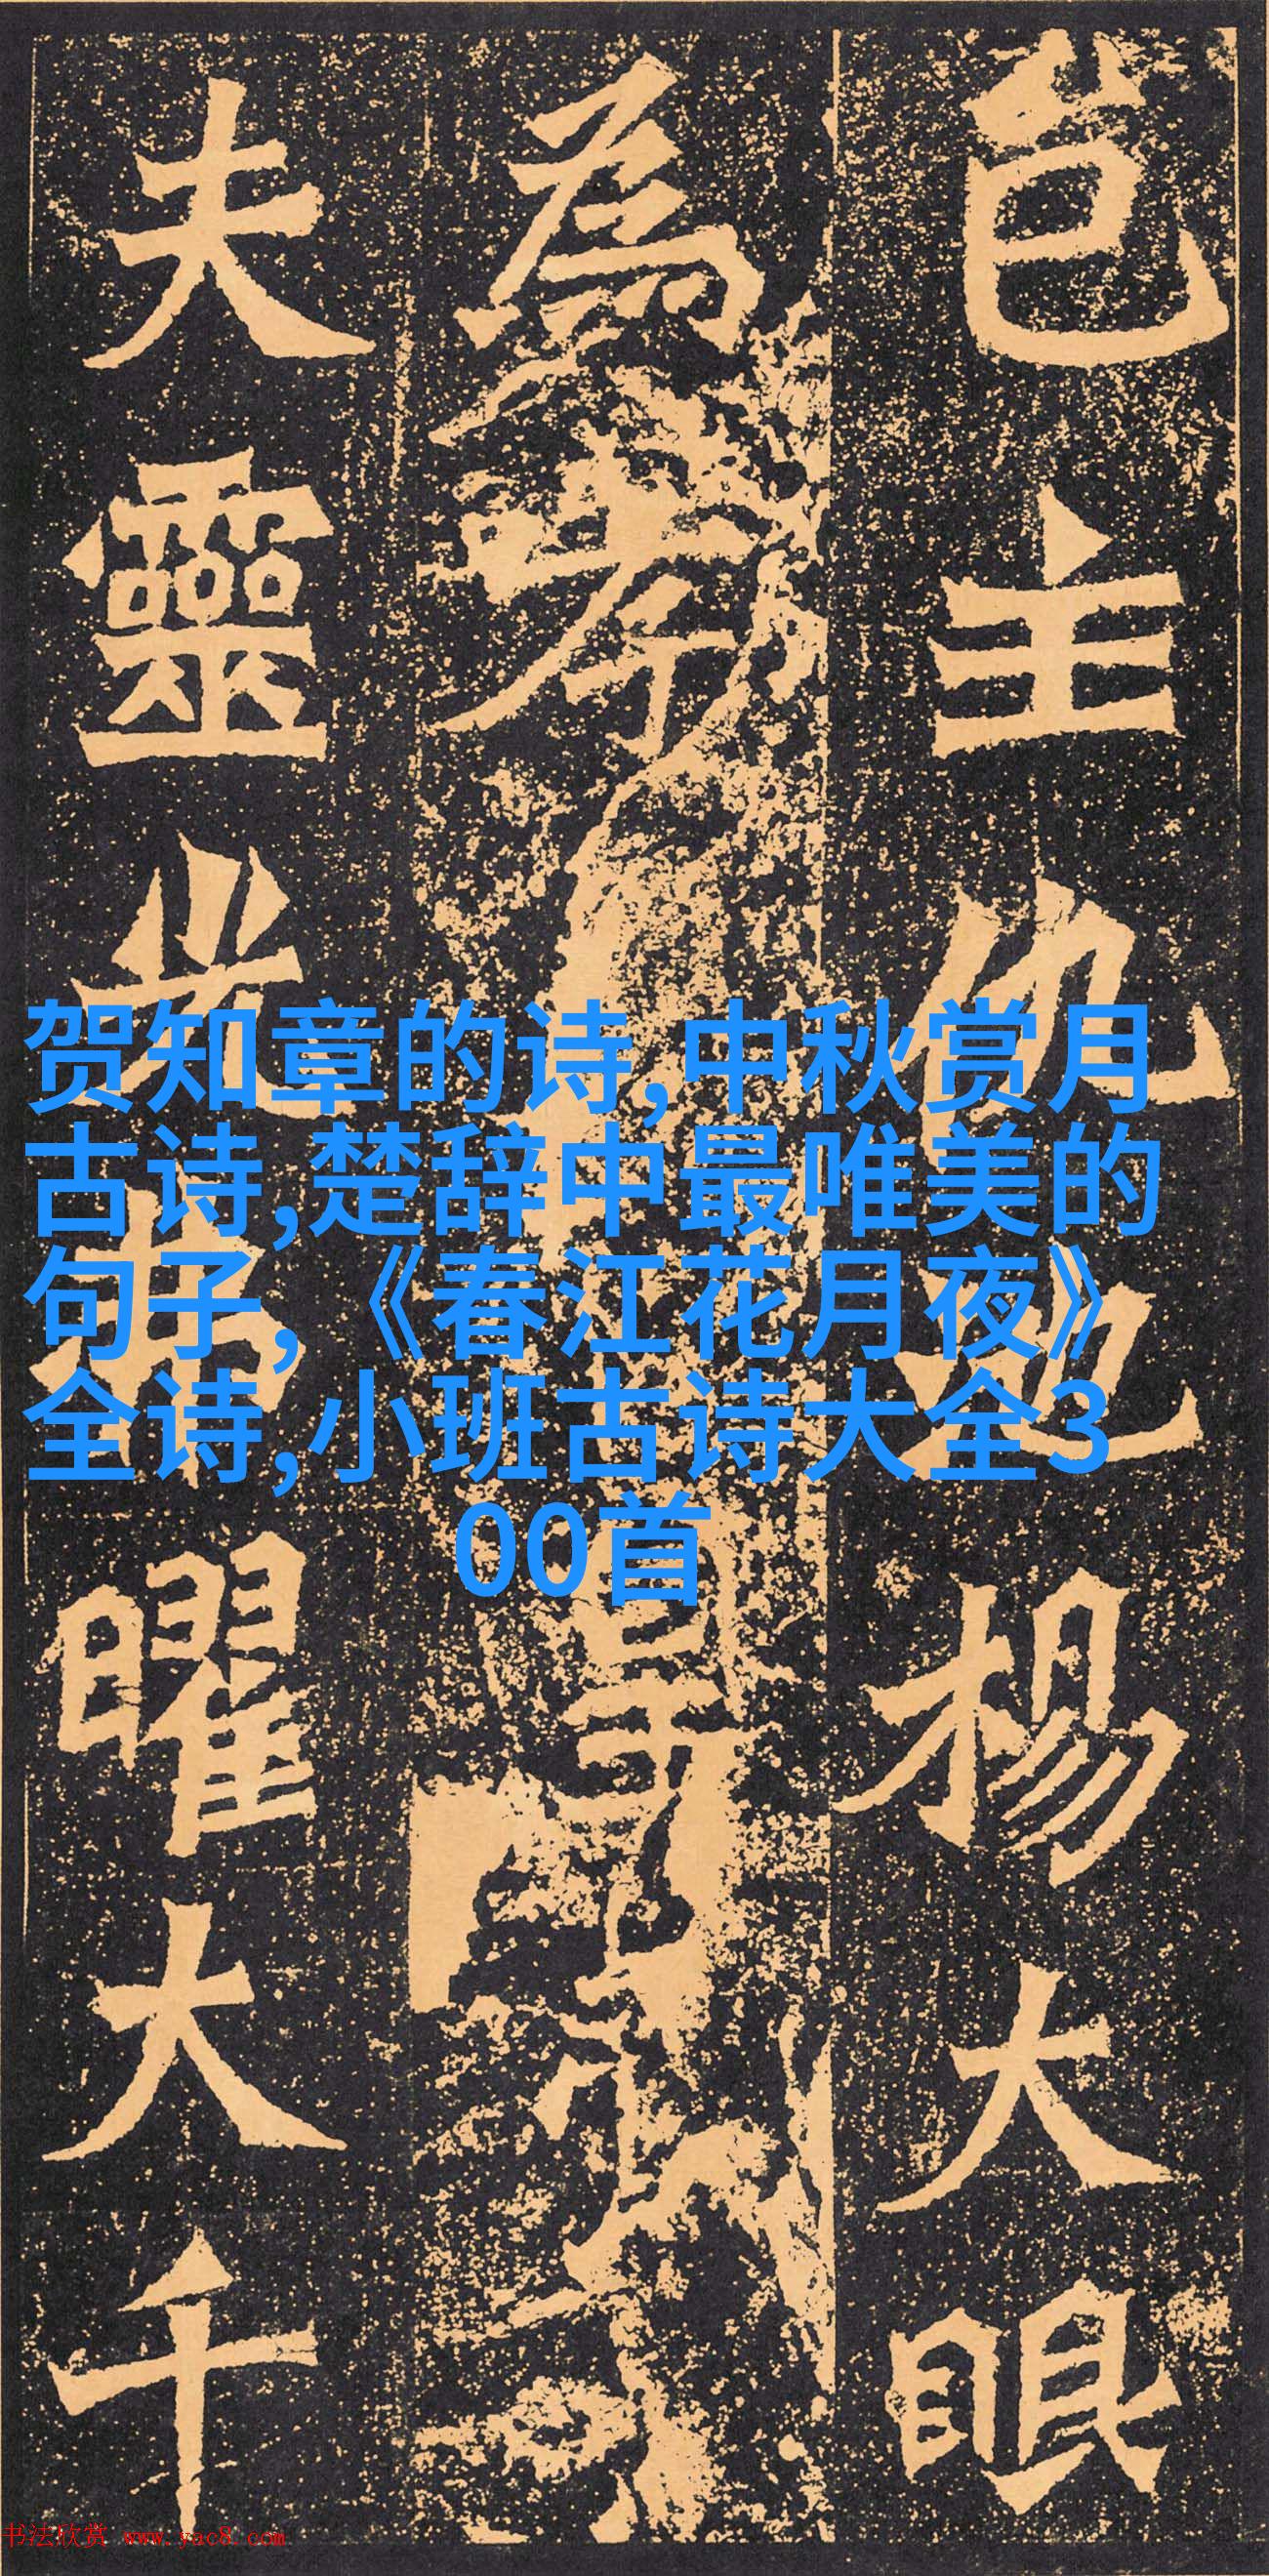 邑主仇池楊大眼
為孝
夫靈光弗曜大千
贺知章的诗,中秋赏月
古诗,楚辞中最唯美的
句子,《春江花月夜》
全诗,小班古诗大全3
00首
书法欣赏 www.yac8.com